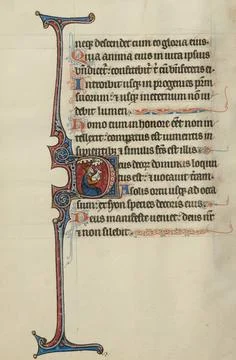 neqȝ descendet cum eo gloria eius.
Quia anima eius in uita ipsius
Introibit usqȝ in progenies patrū
suorum: ⁊ usqȝ in eternum nō ui
debit lumen.
Homo cum in honore esset non in
tellexit: comparatus est iumentis in
sipientibȝ ⁊ similis fcūs est illis.
Deus deorū dominus locutus
est: ⁊ uocauit terram.
A solis ortu usqȝ ad occa
sum: ex syon species decoris eius.
Deus manifeste ueniet: deus nr̄
⁊ non silebit.